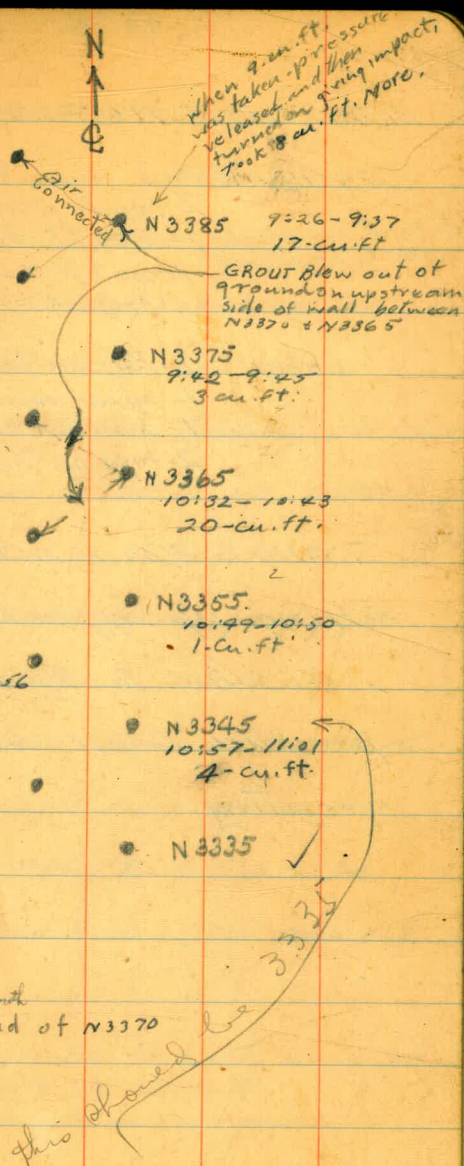 N
C
When 9-cu.ft.
was taken-pressure
released and then
turned on giving impact,
Took 8 cu. ft. More.
Air
Connected
N 3385 9:26-9:37
17-cu.ft
GROUT Blew out of
ground on upstream
side of wall between
N3370 & N3365
N 3375
9:42-9:45
3 cu.ft.
N 3365
10:32-10:43
20-cu.ft.
2
N 3355.
10:49-10:50
1-Cu.ft
56
N 3345
10:57-11:01
4-cu.ft.
N 3335 ✓
this should be 3335
nd of N3370